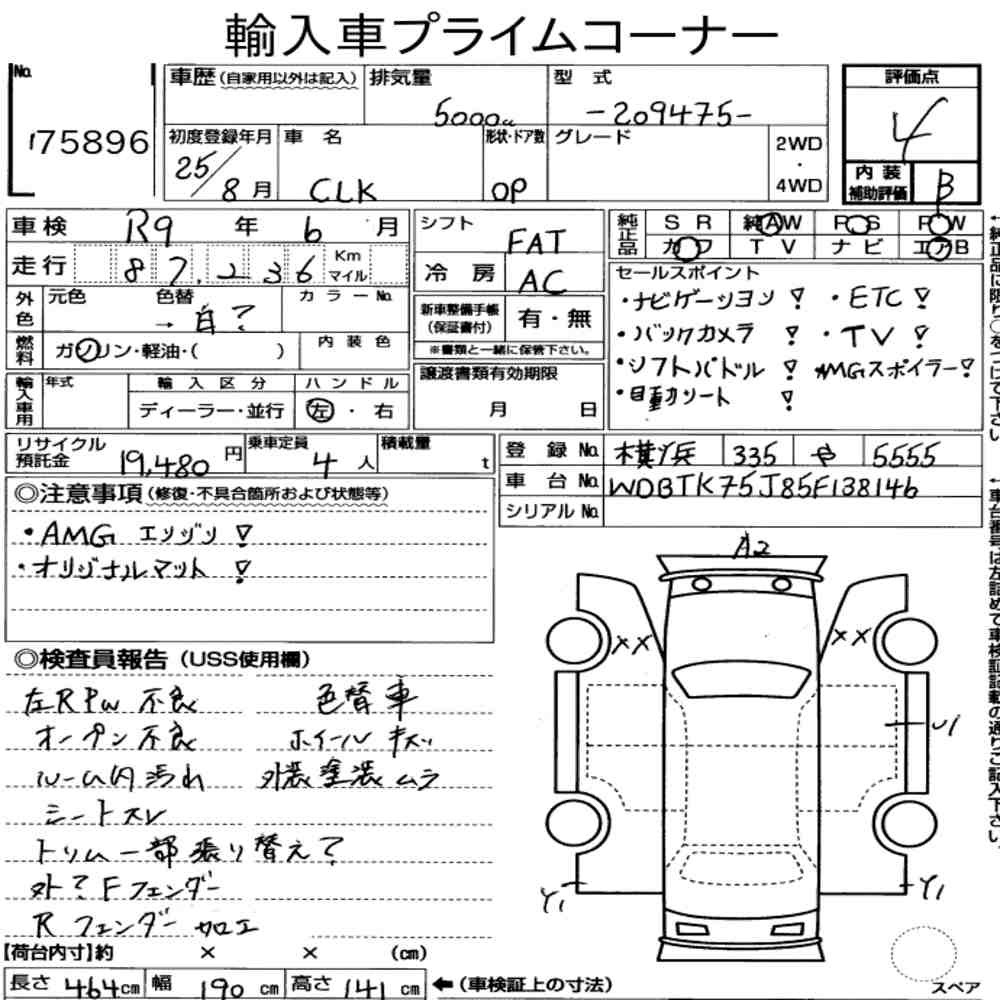 輸入車プライムコーナー
No.
175896
車歴 (自家用以外は記入) 排気量 5000cc 型式 -209475-
初度登録年月 25/8月 車名 CLK 形状・ドア数 OP グレード 2WD・4WD
評価点 4
内装補助評価 B
車検 R9年 6月
走行 87,236 Km マイル
外色 元色 色替 → 白? カラーNo.
燃料 ガソリン・軽油・( ) 内装色
輸入車用 年式 輸入区分 ディーラー・並行 ハンドル 左・右
シフト FAT
冷房 AC
新車整備手帳(保証書付) 有・無
※書類と一緒に保管下さい。
譲渡書類有効期限
月 日
純正品 SR 純AW PS PW
カワ TV ナビ エアB
セールスポイント
・ナビゲーション! ・ETC!
・バックカメラ! ・TV!
・シフトパドル! AMGスポイラー!
・自動シート!
リサイクル預託金 19,480円 乗車定員 4人 積載量 t
登録No. 横浜 335 や 5555
車台No. WDBTK75J85F138146
シリアルNo.
◎注意事項 (修復・不具合箇所および状態等)
・AMG エンジン!
・オリジナルマット!
◎検査員報告 (USS使用欄)
左RPW 不良 色替車
オープン不良 ホイールキズ
ルーム内汚れ 外装塗装ムラ
シートスレ
トリム一部張り替え?
外?Fフェンダー
Rフェンダー加工
A2
XX XX
Y1 Y1
スペア
【荷台内寸】約 × × (cm)
長さ 464cm 幅 190cm 高さ 141cm ←(車検証上の寸法)